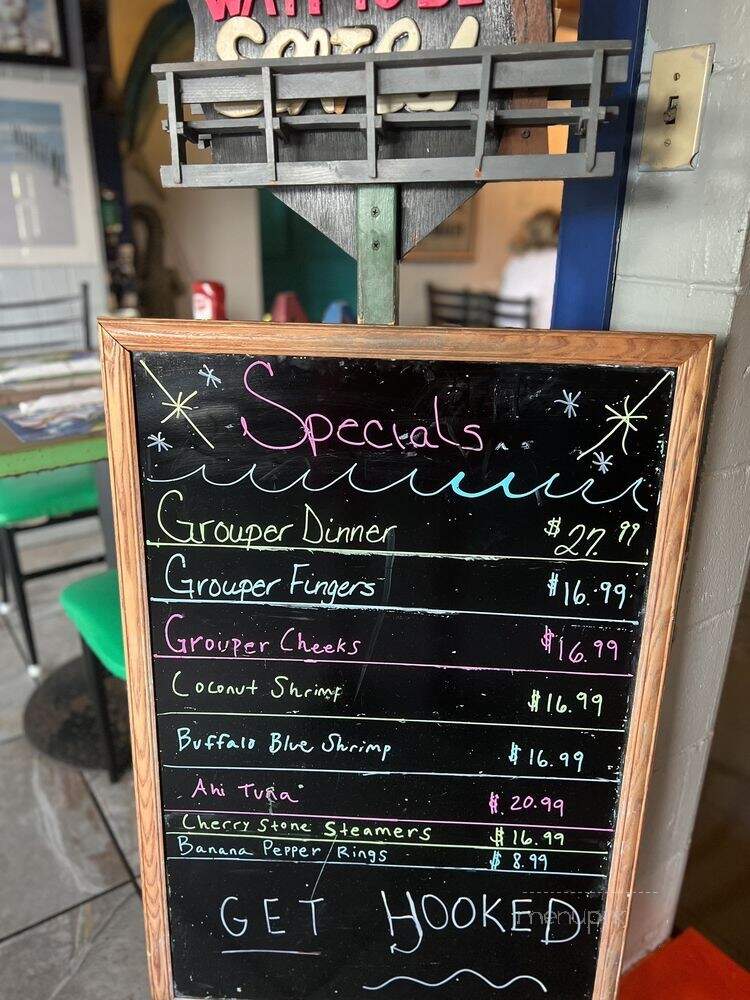 WAIT TO BE
Specials...
Grouper Dinner $27.99
Grouper Fingers $16.99
Grouper Cheeks $16.99
Coconut Shrimp $16.99
Buffalo Blue Shrimp $16.99
Ahi Tuna $20.99
Cherry Stone Steamers $16.99
Banana Pepper Rings $8.99
GET HOOKED